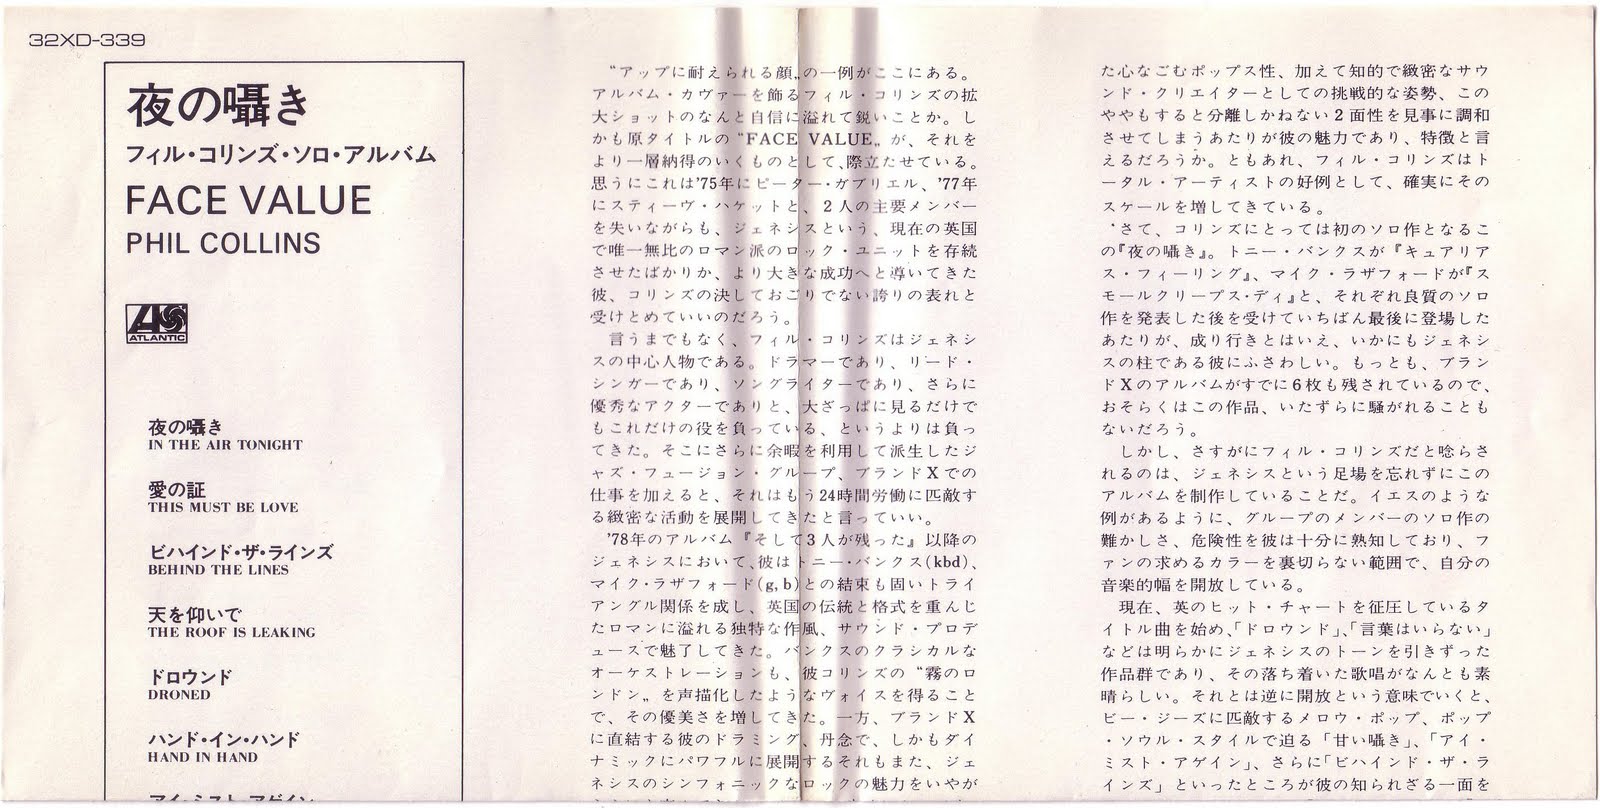 32XD-339
夜の囁き
フィル・コリンズ・ソロ・アルバム
FACE VALUE
PHIL COLLINS
ATLANTIC
夜の囁き
IN THE AIR TONIGHT
愛の証
THIS MUST BE LOVE
ビハインド・ザ・ラインズ
BEHIND THE LINES
天を仰いで
THE ROOF IS LEAKING
ドロウンド
DRONED
ハンド・イン・ハンド
HAND IN HAND
アイ・ミスト・アゲイン
“アップに耐えられる顔„の一例がここにある。
アルバム・カヴァーを飾るフィル・コリンズの拡
大ショットのなんと自信に溢れて鋭いことか。し
かも原タイトルの“FACE VALUE„が、それを
より一層納得のいくものとして、際立たせている。
思うにこれは'75年にピーター・ガブリエル、'77年
にスティーヴ・ハケットと、2人の主要メンバー
を失いながらも、ジェネシスという、現在の英国
で唯一無比のロマン派のロック・ユニットを存続
させたばかりか、より大きな成功へと導いてきた
彼、コリンズの決しておごりでない誇りの表れと
受けとめていいのだろう。
言うまでもなく、フィル・コリンズはジェネシ
スの中心人物である。ドラマーであり、リード・
シンガーであり、ソングライターであり、さらに
優秀なアクターでありと、大ざっぱに見るだけで
もこれだけの役を負っている、というよりは負っ
てきた。そこにさらに余暇を利用して派生したジ
ャズ・フュージョン・グループ、ブランドXでの
仕事を加えると、それはもう24時間労働に匹敵す
る緻密な活動を展開してきたと言っていい。
'78年のアルバム『そして3人が残った』以降の
ジェネシスにおいて、彼はトニー・バンクス(kbd)、
マイク・ラザフォード(g,b)との結束も固いトライ
アングル関係を成し、英国の伝統と格式を重んじ
たロマンに溢れる独特な作風、サウンド・プロデ
ュースで魅了してきた。バンクスのクラシカルな
オーケストレーションも、彼コリンズの“霧のロ
ンドン„を声描化したようなヴォイスを得ること
で、その優美さを増してきた。一方、ブランドX
に直結する彼のドラミング、丹念で、しかもダイ
ナミックにパワフルに展開するそれもまた、ジェ
ネシスのシンフォニックなロックの魅力をいやが
た心なごむポップス性、加えて知的で緻密なサウ
ンド・クリエイターとしての挑戦的な姿勢、この
ややもすると分離しかねない2面性を見事に調和
させてしまうあたりが彼の魅力であり、特徴と言
えるだろうか。ともあれ、フィル・コリンズはト
ータル・アーティストの好例として、確実にその
スケールを増してきている。
さて、コリンズにとっては初のソロ作となるこ
の『夜の囁き』。トニー・バンクスが『キュアリア
ス・フィーリング』、マイク・ラザフォードが『ス
モールクリープス・ディ』と、それぞれ良質のソロ
作を発表した後を受けていちばん最後に登場した
あたりが、成り行きとはいえ、いかにもジェネシ
スの柱である彼にふさわしい。もっとも、ブラン
ドXのアルバムがすでに6枚も残されているので、
おそらくはこの作品、いたずらに騒がれることも
ないだろう。
しかし、さすがにフィル・コリンズだと唸らさ
れるのは、ジェネシスという足場を忘れずにこの
アルバムを制作していることだ。イエスのような
例があるように、グループのメンバーのソロ作の
難かしさ、危険性を彼は十分に熟知しており、フ
ァンの求めるカラーを裏切らない範囲で、自分の
音楽的幅を開放している。
現在、英のヒット・チャートを征圧しているタ
イトル曲を始め、「ドロウンド」、「言葉はいらない」
などは明らかにジェネシスのトーンを引きずった
作品群であり、その落ち着いた歌唱がなんとも素
晴らしい。それとは逆に開放という意味でいくと、
ビー・ジーズに匹敵するメロウ・ポップ、ポップ
・ソウル・スタイルで迫る「甘い囁き」、「アイ・
ミスト・アゲイン」、さらに「ビハインド・ザ・ラ
インズ」といったところが彼の知られざる一面を